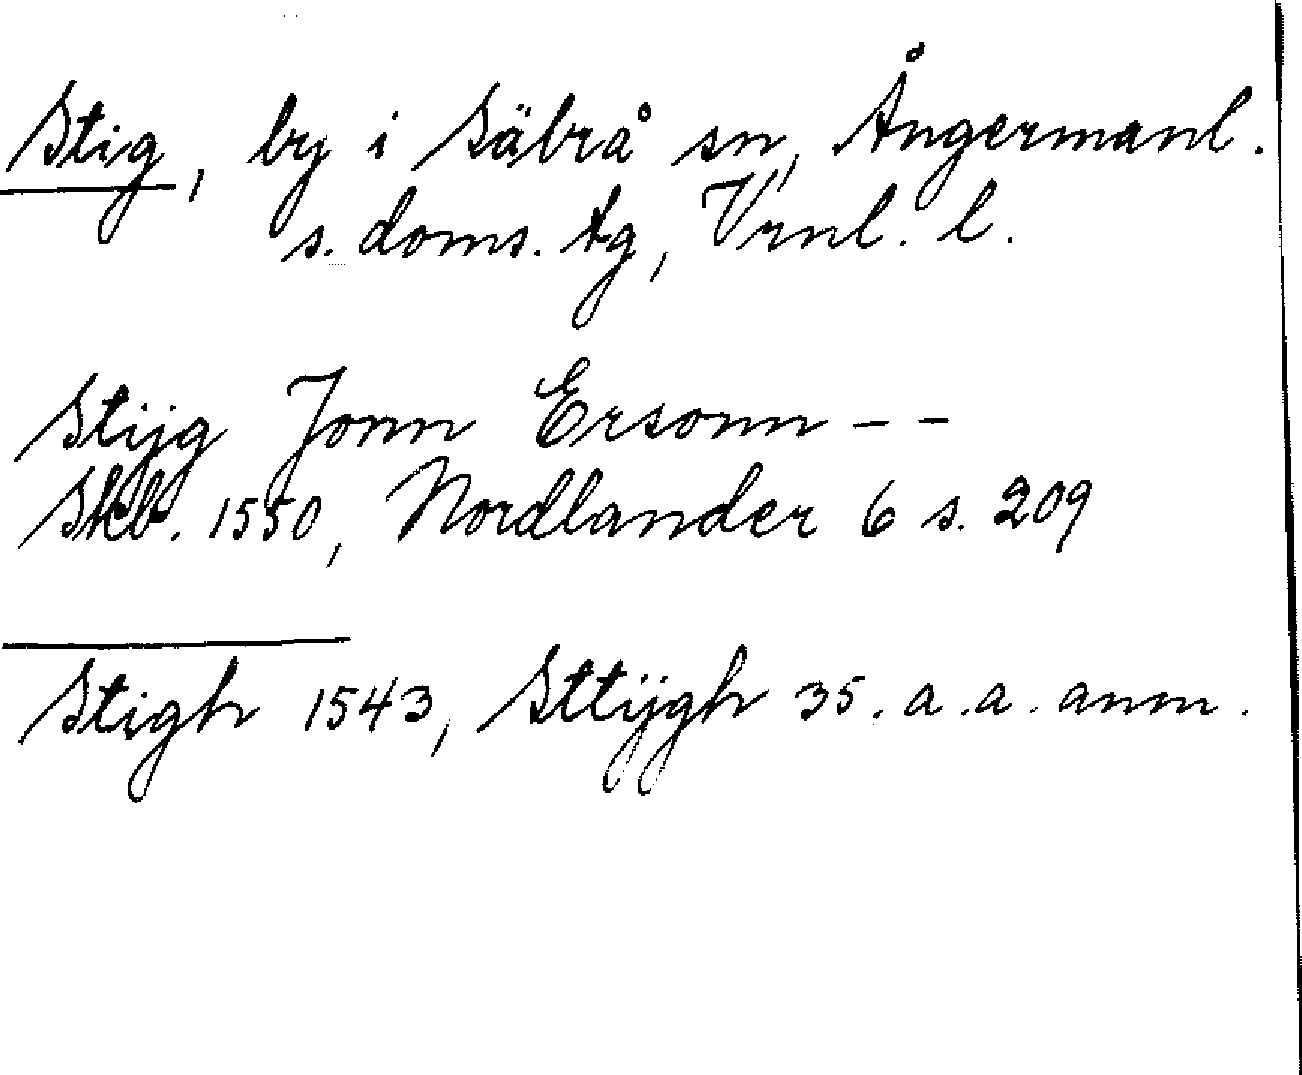 Stig, by i Säbrå sn, Ångermanl.
s. doms. tg, Vrnl. l.
Stijg Jonn Ersonn - -
Skb. 1550, Nordlander 6 s. 209
Stigh 1543, Sttijgh 35. a.a. anm.